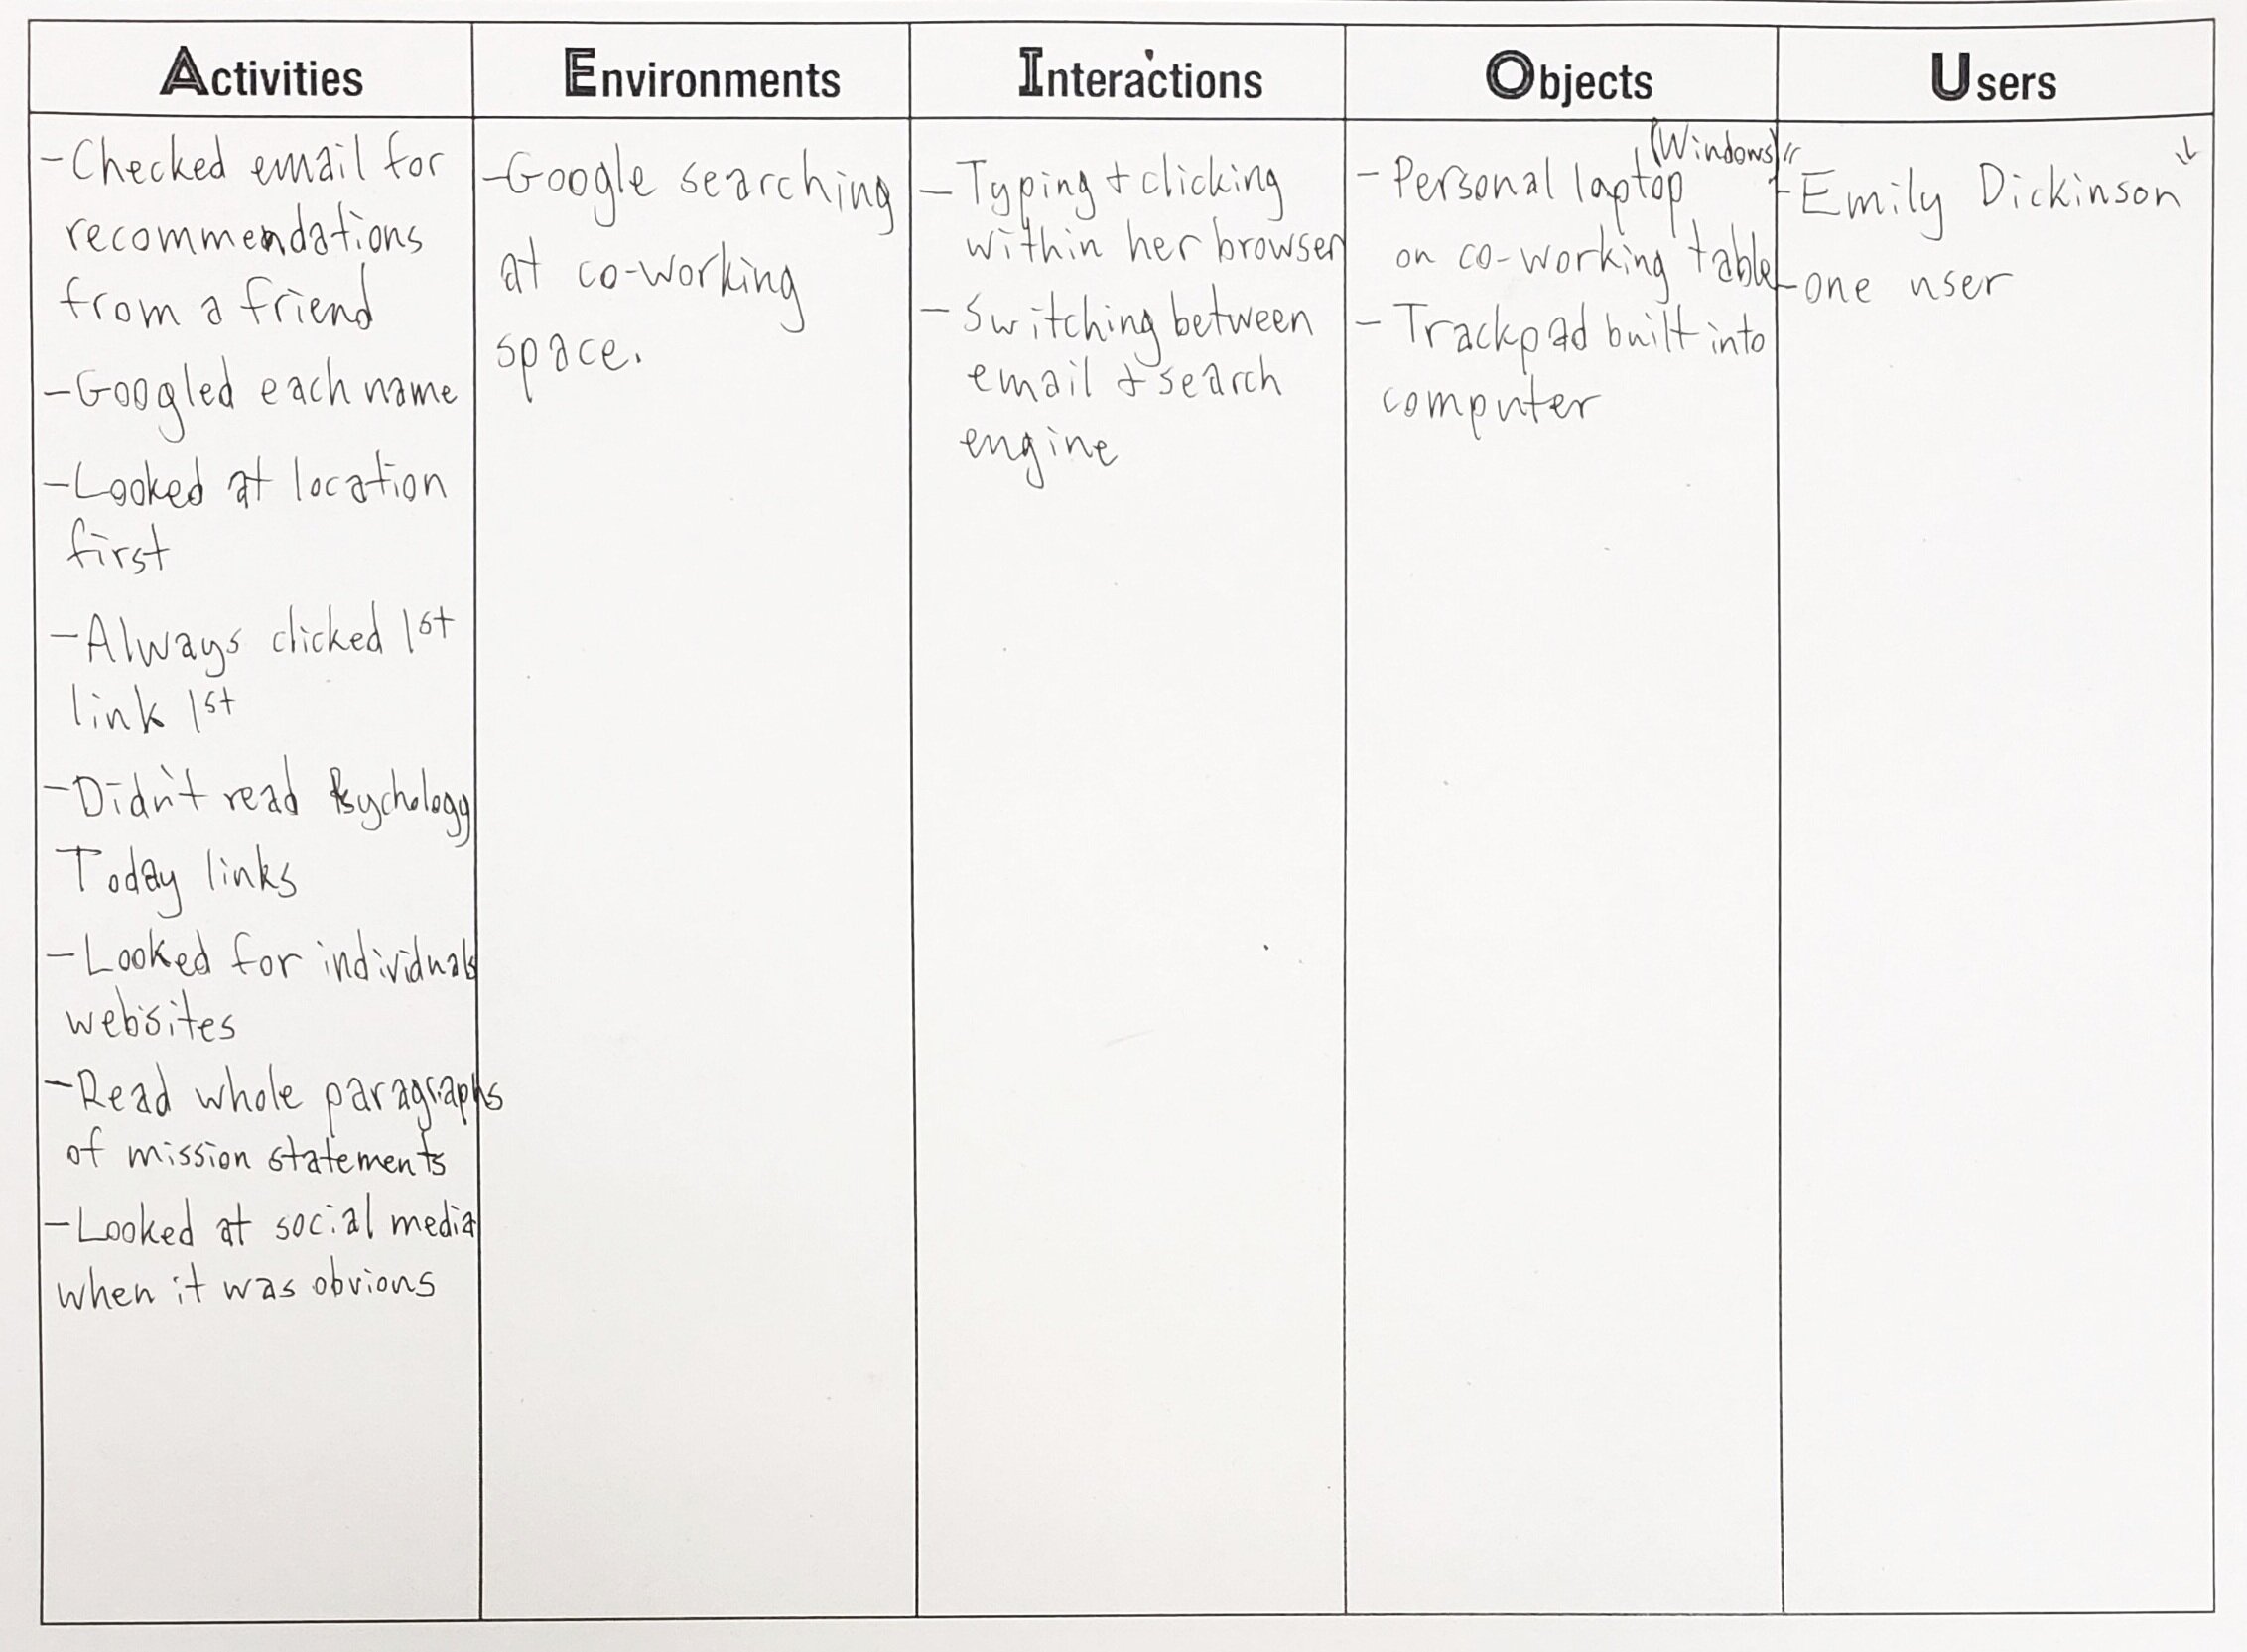 Activities
Environments
Interactions
Objects
Users
-Checked email for
recommendations
from a friend
-Googled each name
-Looked at location
first
-Always clicked 1st
link 1st
-Didn't read Psychology
Today links
-Looked for individuals
websites
-Read whole paragraphs
of mission statements
-Looked at social media
when it was obvious
-Google searching
at co-working
space.
- Typing + clicking
within her browser
- Switching between
email + search
engine
(Windows)
- Personal laptop
on co-working table
- Trackpad built into
computer
"Emily Dickinson"
-one user